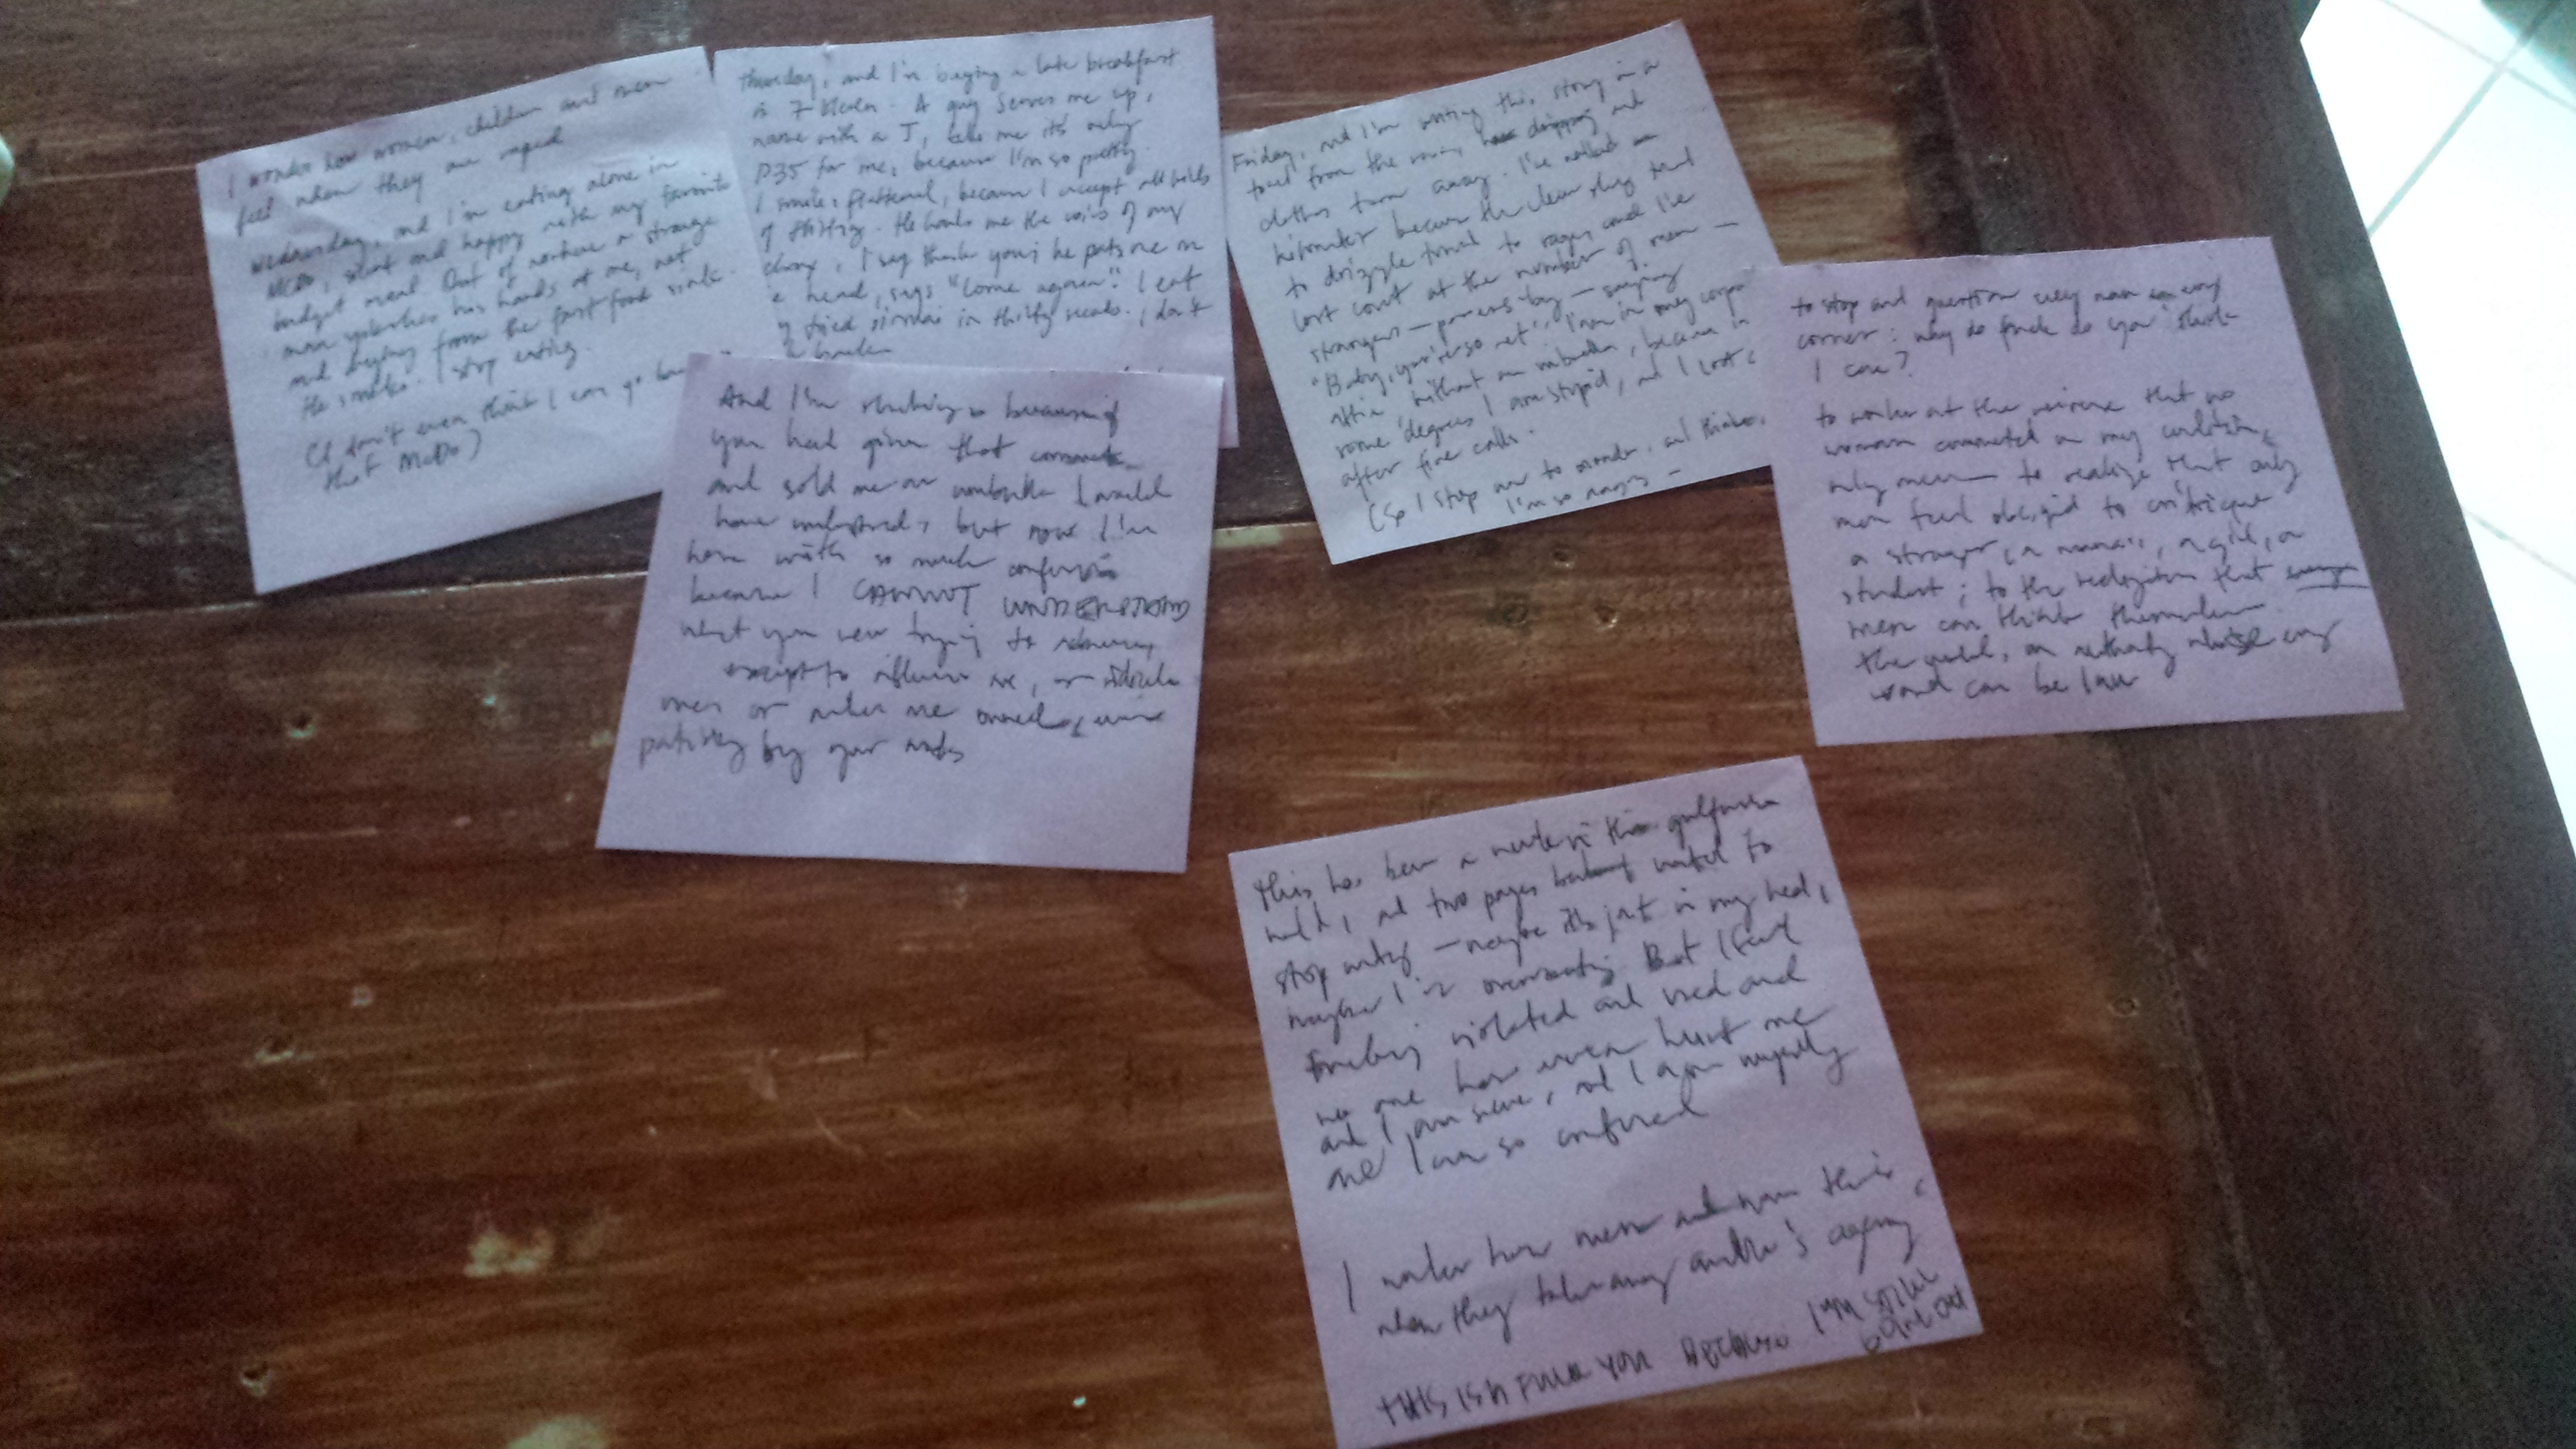 I wonder how women, children and men
feel when they are raped
Wednesday, and I'm eating alone in
McDo, silent and happy with my favorite
budget meal. Out of nowhere a strange
man his hands at me, not
and buying from the fast food
He smiles. I stop eating.
(I don't even think I can go
that McDo)
Thursday, and I'm buying a late breakfast
in 7 Eleven. A guy serves me up,
name with a J, tells me it's only
P35 for me, because I'm so pretty.
I smile, flattered, because I accept all kinds
of flirting. He hands me the coins of my
change, I say thank you; he pats me on
head, says "Come again". I eat
fried siomai in thirty seconds. I don't
And I'm shaking because if
you had given that comment
and sold me an umbrella I would
have understood, but now I'm
home with so much confusion
because I CANNOT UNDERSTAND
what you were trying to
except to me, or ridicule
or make me
by your
Friday, and I'm writing this story in a
towel from the dripping wet
clothes away. I've walked a
kilometer because the clear sky
to drizzle to rages and I've
lost count at the number of men —
strangers — passers by — saying
"Baby, you're so wet". I am in my
attire, without an umbrella, because in
some degrees I am stupid, and I
after five calls.
(So I stop now to wonder, and
I'm so —
to stop and question every man on every
corner: why do fuck do you think
I care?
to wonder at the that no
woman commented on my condition,
only men — to realize that only
men feel obliged to critique
a stranger, a , a girl, a
student; to the that
men can think themselves
the world, an authority whose every
word can be law
This has been a this
, and two pages I wanted to
stop writing — maybe it's just in my head,
maybe I'm overreacting. But I feel
fucking violated and used and
no one has even hurt me
and I am , and I myself
and I am so confused
I wonder how men and women think,
when they take away another's agency
THIS IS A FUCK YOU BECAUSE I AM STILL